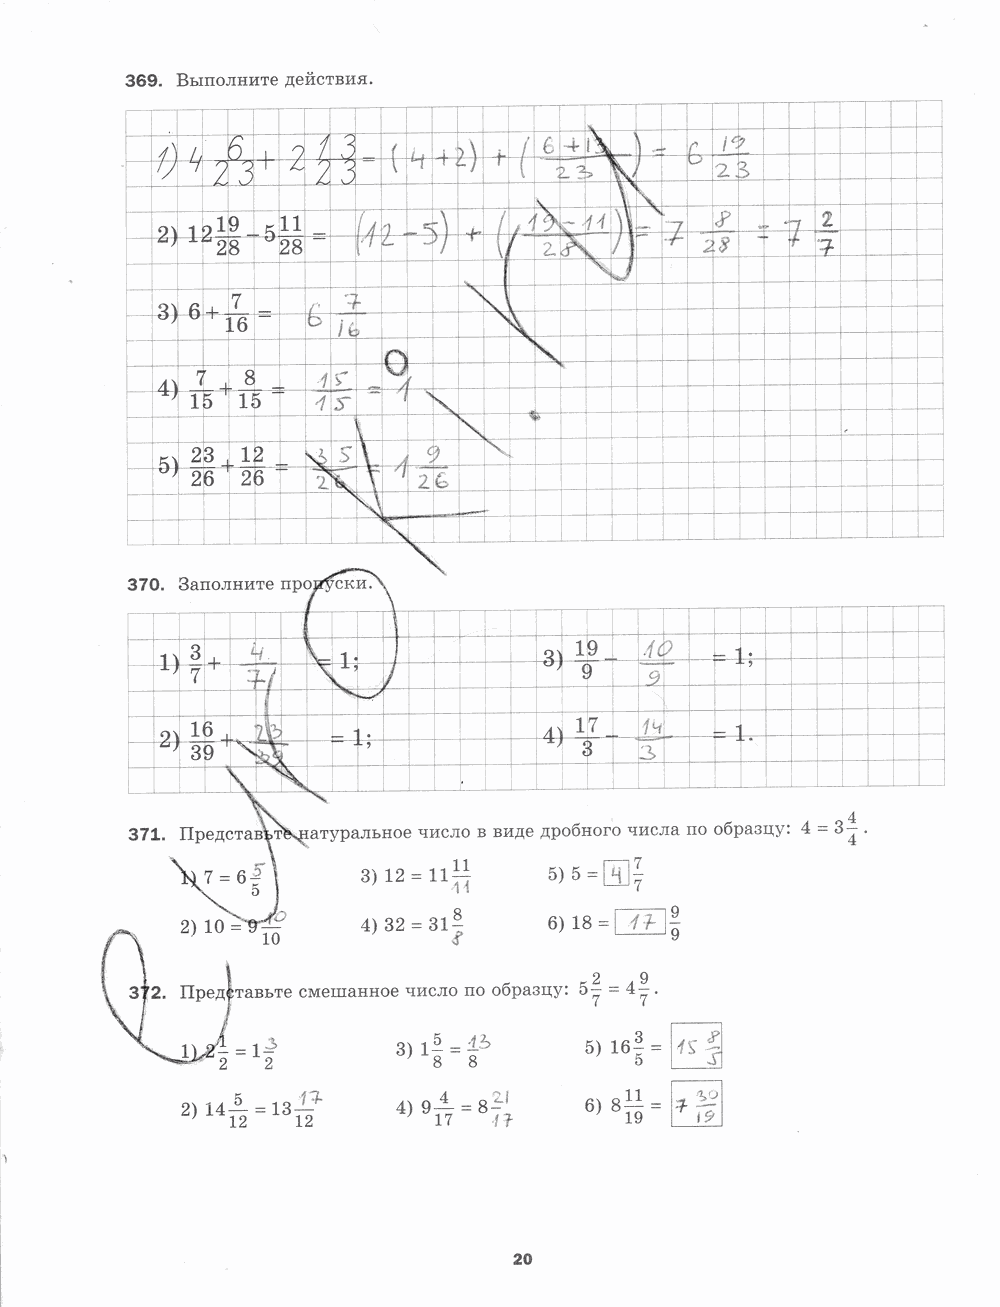 369. Выполните действия.
1) 4 6/23 + 2 13/23 = (4+2) + (6+13/23) = 6 19/23
2) 12 19/28 − 5 11/28 = (12−5) + (19−11/28) = 7 8/28 = 7 2/7
3) 6 + 7/16 = 6 7/16
4) 7/15 + 8/15 = 15/15 = 1
5) 23/26 + 12/26 = 35/26 = 1 9/26
370. Заполните пропуски.
1) 3/7 + 4/7 = 1; 3) 19/9 − 10/9 = 1;
2) 16/39 + 23/39 = 1; 4) 17/3 − 14/3 = 1.
371. Представьте натуральное число в виде дробного числа по образцу: 4 = 3 4/4.
1) 7 = 6 5/5 3) 12 = 11 11/11 5) 5 = 4 7/7
2) 10 = 9 10/10 4) 32 = 31 8/8 6) 18 = 17 9/9
372. Представьте смешанное число по образцу: 5 2/7 = 4 9/7.
1) 2 1/2 = 1 3/2 3) 1 5/8 = 13/8 5) 16 3/5 = 15 8/5
2) 14 5/12 = 13 17/12 4) 9 4/17 = 8 21/17 6) 8 11/19 = 7 30/19
20